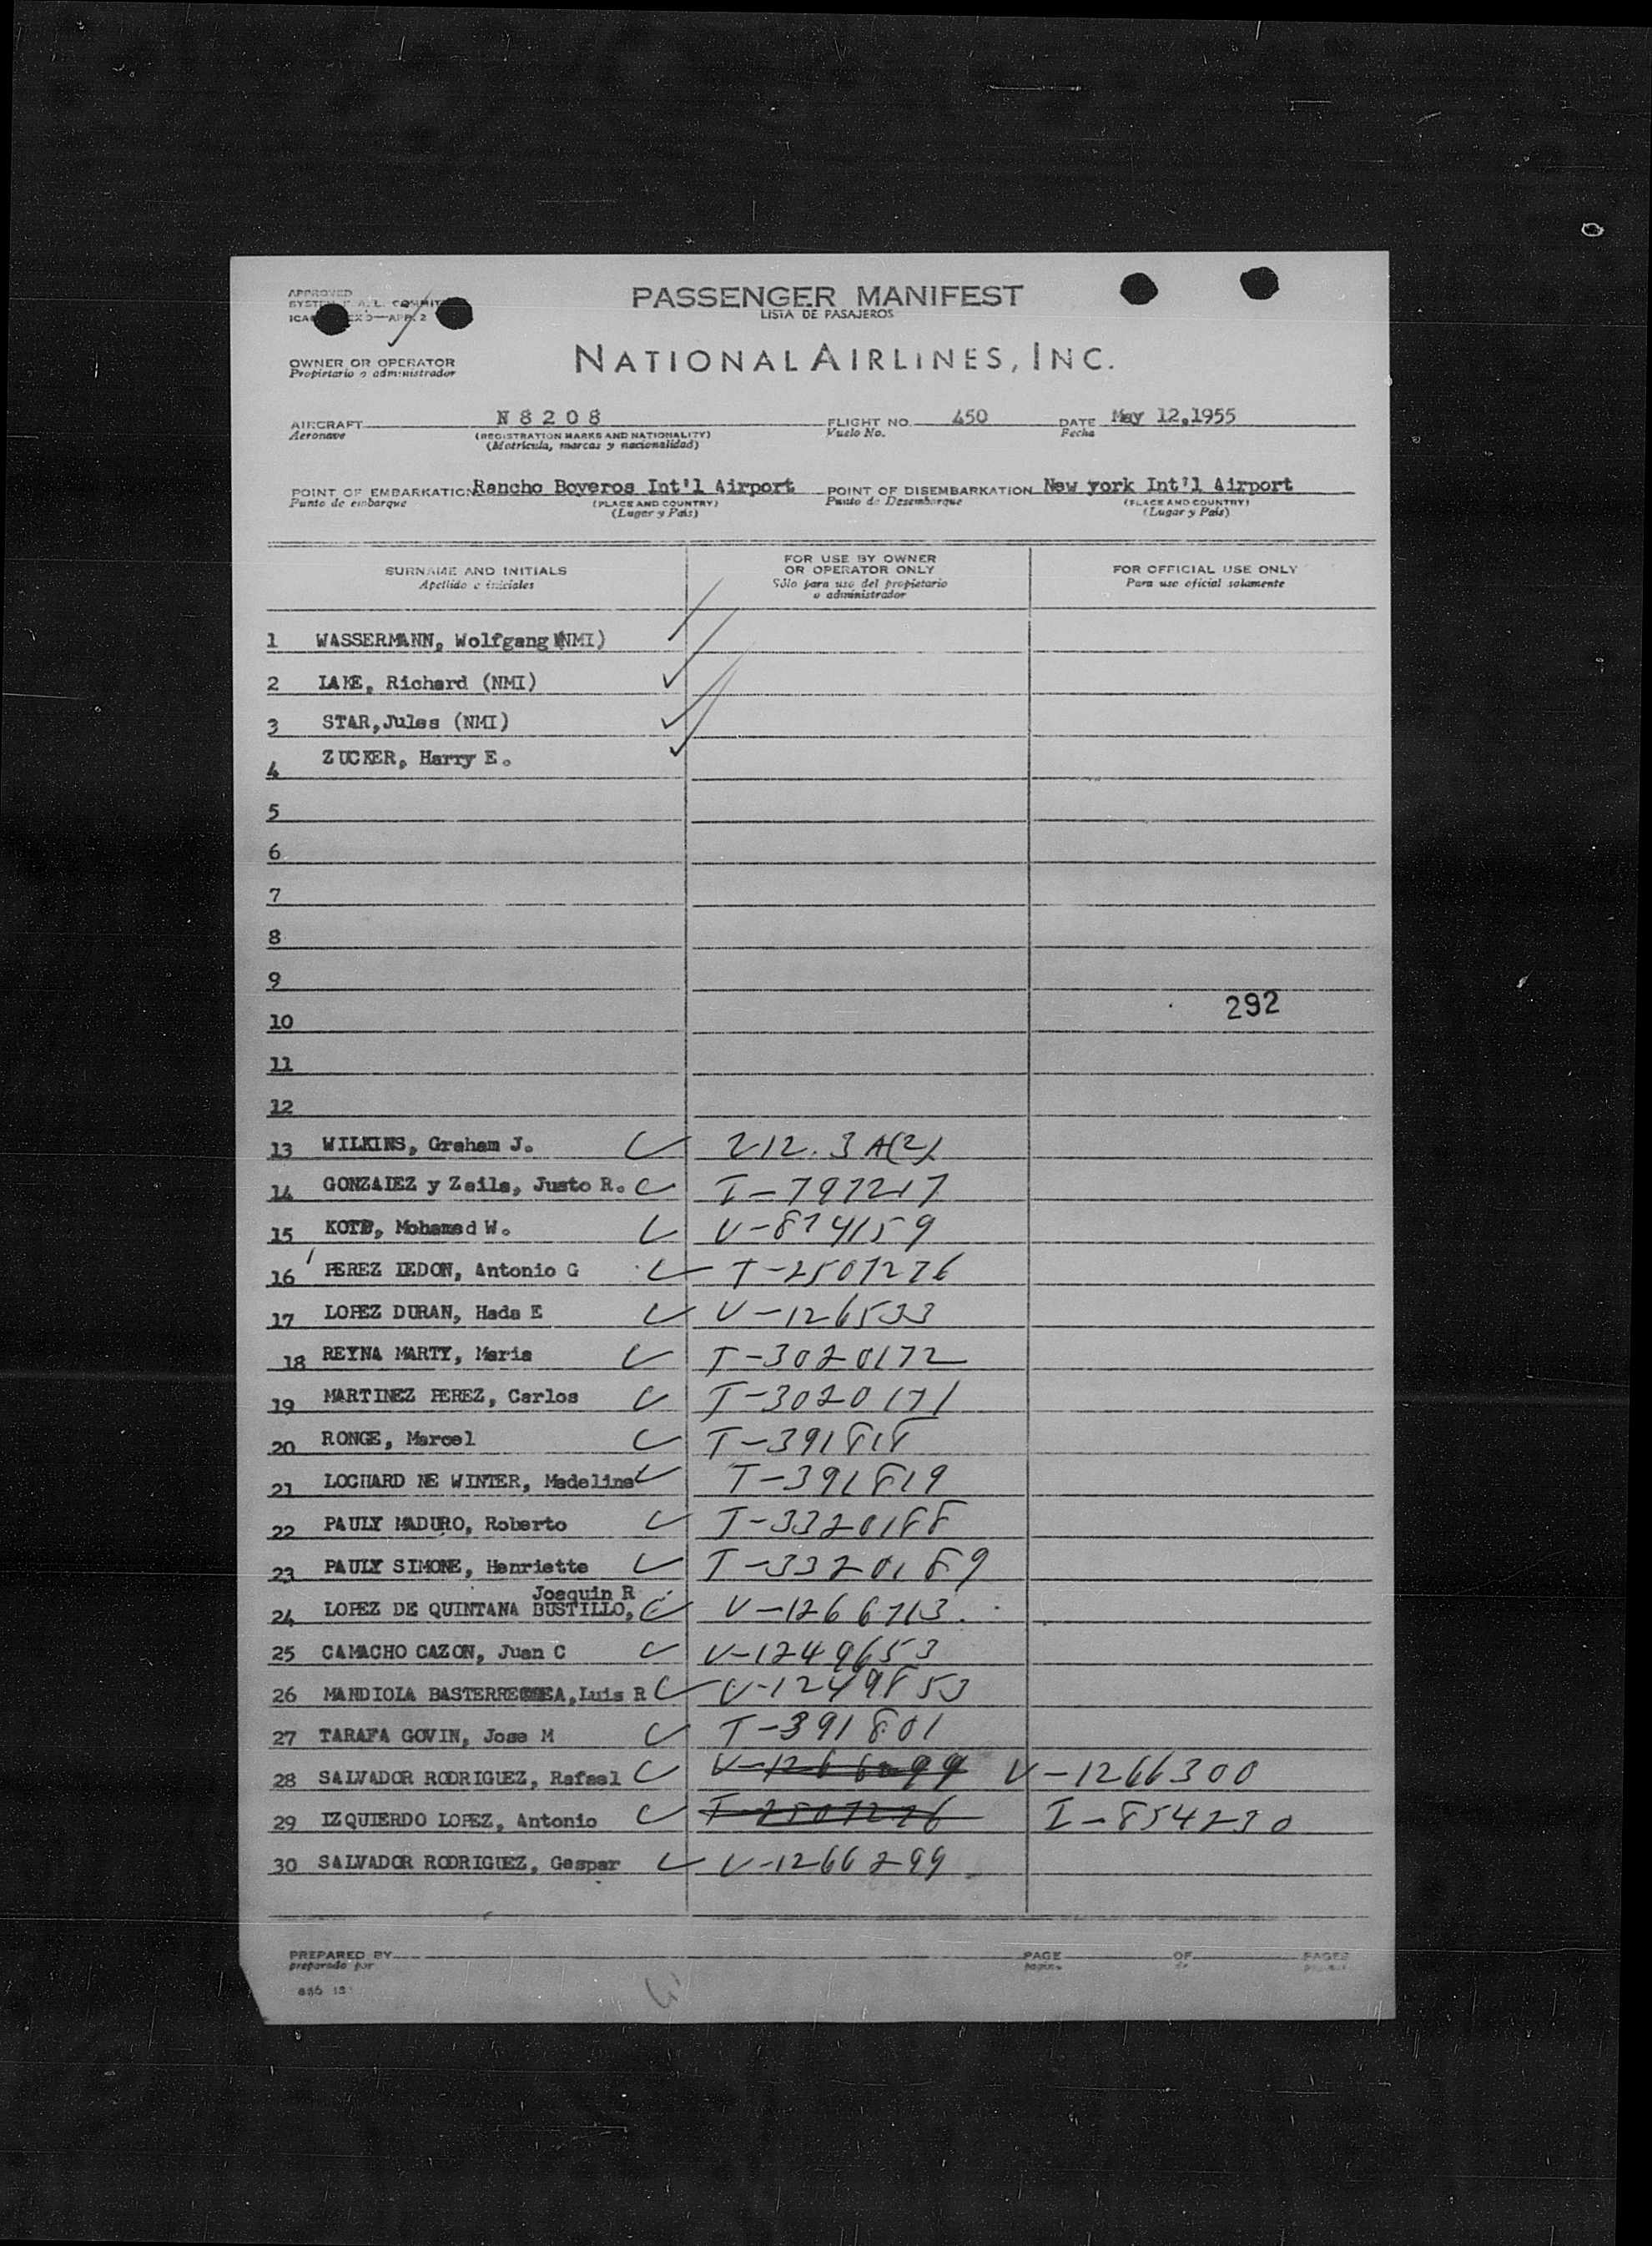 APPROVED
PASSENGER MANIFEST
LISTA DE PASAJEROS
OWNER OR OPERATOR
Propietario o administrador
NATIONAL AIRLINES, INC.
AIRCRAFT N 8 2 0 8 FLIGHT NO. 450 DATE May 12,1955
Aeronave (REGISTRATION MARKS AND NATIONALITY) Vuelo No. Fecha
(Matrícula, marcas y nacionalidad)
POINT OF EMBARKATION Rancho Boyeros Int'l Airport POINT OF DISEMBARKATION New york Int'l Airport
Punto de embarque (PLACE AND COUNTRY) Punto de Desembarque (PLACE AND COUNTRY)
(Lugar y País) (Lugar y País)
SURNAME AND INITIALS
Apellido e iniciales
FOR USE BY OWNER
OR OPERATOR ONLY
Sólo para uso del propietario
o administrador
FOR OFFICIAL USE ONLY
Para uso oficial solamente
1 WASSERMANN, Wolfgang (NMI)
2 LAKE, Richard (NMI)
3 STAR,Jules (NMI)
4 ZUCKER, Harry E.
5
6
7
8
9
292
10
11
12
13 WILKINS, Graham J. 212.3A(2)
14 GONZALEZ y Zaila, Justo R. I-797217
15 KOTB, Mohamed W. V-874159
16 PEREZ LEDON, Antonio G T-2507276
17 LOPEZ DURAN, Hada E V-126533
18 REYNA MARTY, Maria T-3020172
19 MARTINEZ PEREZ, Carlos T-3020171
20 RONGE, Marcel T-391818
21 LOCHARD NE WINTER, Madeline T-391819
22 PAULY MADURO, Roberto T-3320188
23 PAULY SIMONE, Henriette T-3320189
Joaquin R
24 LOPEZ DE QUINTANA BUSTILLO, V-1266713
25 CAMACHO CAZON, Juan C V-1249653
26 MANDIOLA , Luis R V-1249853
27 TARAFA GOVIN, Jose M T-391801
28 SALVADOR RODRIGUEZ, Rafael V-1266300
29 IZQUIERDO LOPEZ, Antonio T-2507276 I-854230
30 SALVADOR RODRIGUEZ, Gaspar V-1266299
PREPARED BY PAGE OF PAGES
preparado por pagina de